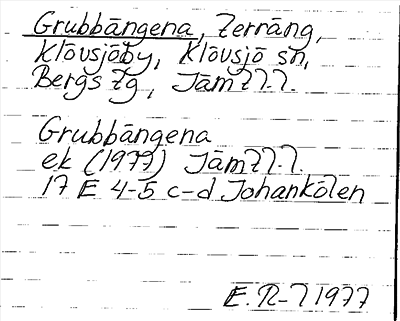 Grubbängena, Terräng,
Klövsjöby, Klövsjö sn,
Bergs tg, Jämtl.l.
Grubbängena
ek (1977) Jämtl.l.
17 E 4-5 c-d Johankölen
E. R-l 1977